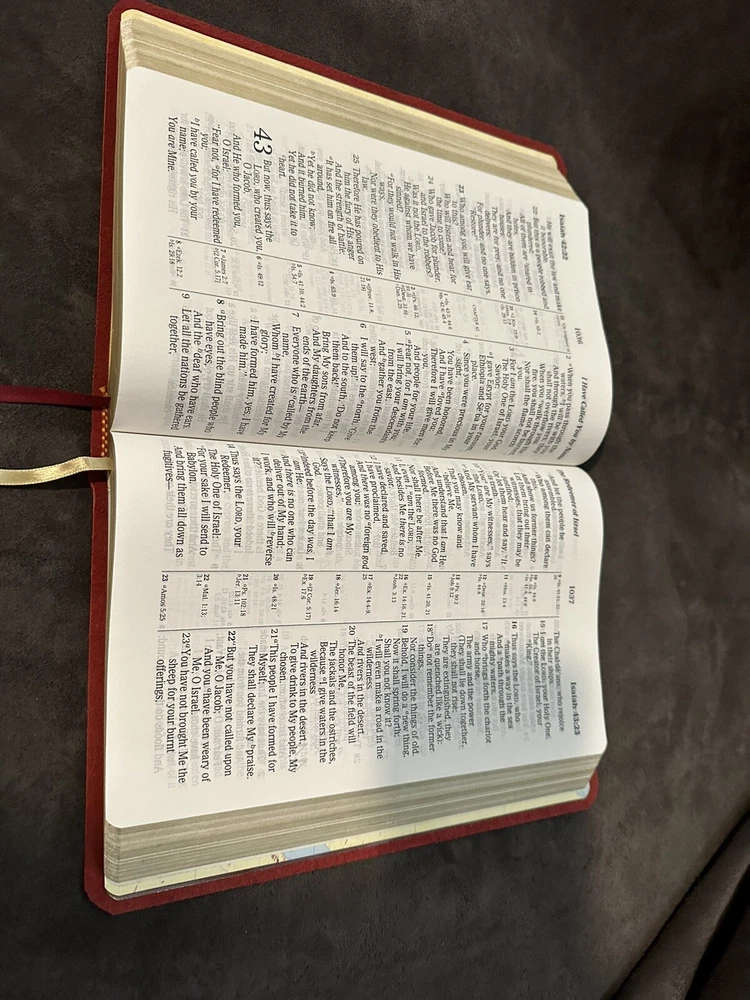 Isaiah 42:22
1036
He will exalt the law and make
it honorable.
22 But this is a people robbed and
plundered;
All of them are snared in
holes,
And they are hidden in prison
houses;
They are for prey, and no one
delivers;
For plunder, and no one says,
"Restore!"
23 Who among you will give ear
to this?
Who will listen and hear for
the time to come?
24 Who gave Jacob for plunder,
and Israel to the robbers?
Was it not the LORD,
He against whom we have
sinned?
For they would not walk in His
ways,
Nor were they obedient to His
law.
25 Therefore He has poured on
him the fury of His anger
And the strength of battle;
It has set him on fire all
around,
Yet he did not know;
And it burned him,
Yet he did not take it to
heart.
43 But now, thus says the
LORD, who created you,
O Jacob,
And He who formed you,
O Israel:
"Fear not, for I have redeemed
you;
I have called you by your
name;
You are Mine.
I Have Called You by
2 When you pass through the
waters,
And through the
shall not overflow
When you walk through the
fire, you shall not
Nor shall the flame scorch
you.
3 For I am the LORD your God,
The Holy One of Israel, your
Savior;
I gave Egypt for your ransom,
Ethiopia and Seba in your
place.
4 Since you were precious in My
sight,
You have been honored,
And I have loved you;
Therefore I will give men for
you,
And people for your life.
5 Fear not, for I am with you;
I will bring your descendants
from the east,
And gather you from the
west;
6 I will say to the north, 'Give
them up!'
And to the south, 'Do not keep
them back!'
Bring My sons from afar,
And My daughters from the
ends of the earth—
7 Everyone who is called by My
name,
Whom I have created for My
glory;
I have formed him, yes, I have
made him."
8 Bring out the blind people who
have eyes,
And the deaf who have ears.
9 Let all the nations be gathered
together,
Redeemer of Israel
1037
Isaiah 43:23
And let the people be
Who among them can declare
this,
And show us former things?
Let them bring out their
witnesses, that they may be
Or let them hear and say, "It
is truth."
"You are My witnesses," says
the LORD,
"And My servant whom I have
chosen,
That you may know and
believe Me,
And understand that I am He.
Before Me there was no God
formed,
Nor shall there be after Me.
I, even I, am the LORD,
And besides Me there is no
savior.
I have declared and saved,
I have proclaimed,
And there was no foreign god
among you;
Therefore you are My
witnesses,"
Says the LORD, "that I am
God.
Indeed before the day was, I
am He;
And there is no one who can
deliver out of My hand;
I work, and who will reverse
it?"
Thus says the LORD, your
Redeemer,
The Holy One of Israel:
"For your sake I will send to
Babylon,
And bring them all down as
fugitives—
The Chaldeans, who rejoice
in their ships.
15 I am the LORD, your Holy One,
The Creator of Israel, your
King."
16 Thus says the LORD, who
makes a way in the sea
And a path through the
mighty waters,
17 Who brings forth the chariot
and horse,
The army and the power
(They shall lie down together,
they shall not rise;
They are extinguished, they
are quenched like a wick):
18 "Do not remember the former
things,
Nor consider the things of old.
19 Behold, I will do a new thing,
Now it shall spring forth;
Shall you not know it?
I will even make a road in the
wilderness
And rivers in the desert.
20 The beast of the field will
honor Me,
The jackals and the ostriches,
Because I give waters in the
wilderness
And rivers in the desert,
To give drink to My people, My
chosen.
21 This people I have formed for
Myself;
They shall declare My praise.
22 "But you have not called upon
Me, O Jacob;
And you have been weary of
Me, O Israel.
23 You have not brought Me the
sheep for your burnt
offerings,